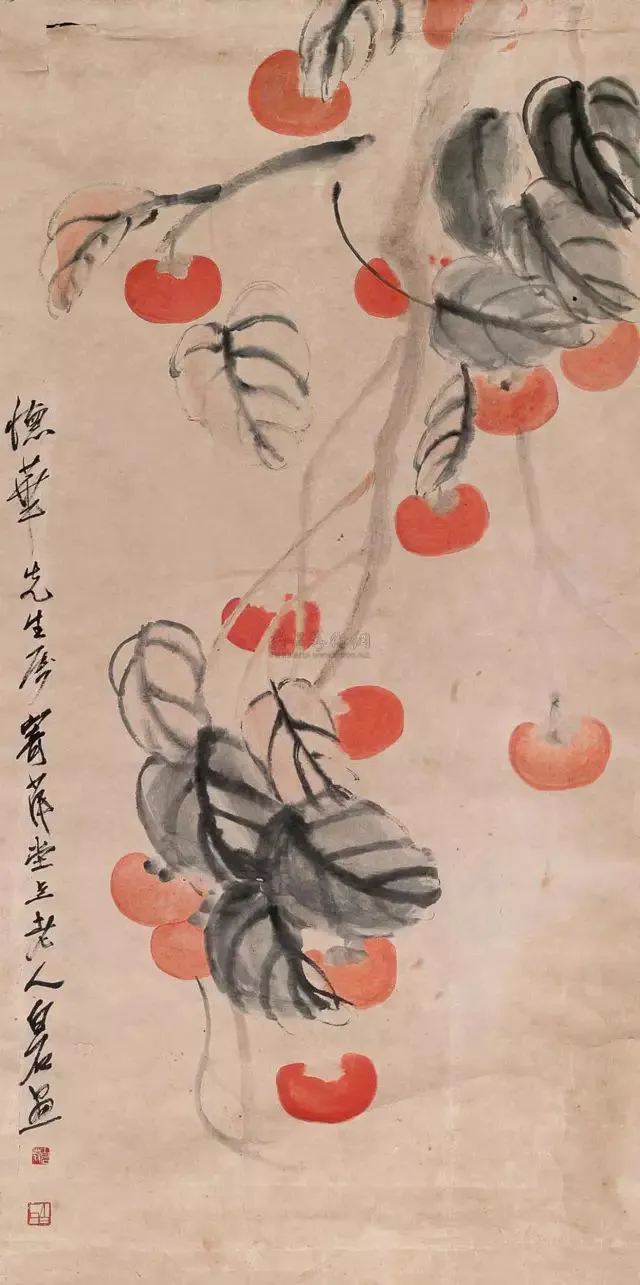 憁華先生属寄萍堂上老人白石画